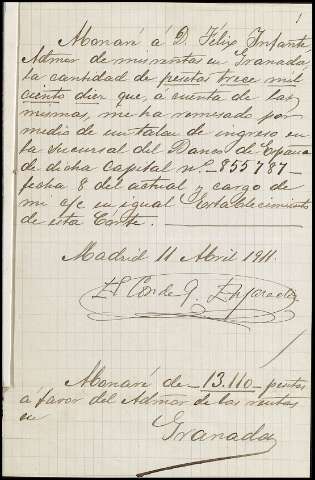 1
Abonaré á D. Félix Infante,
Admor de mis rentas en Granada
la cantidad de pesetas trece mil
ciento diez que, á cuenta de las
mismas, me ha remesado por
medio de un talon de ingreso en
la sucursal del Banco de España
de dicha capital nº 855787
fecha 8 del actual y cargo de
mi c/c en igual Establecimiento
de esta Corte.
Madrid 11 Abril 1911.
El Conde
Abonaré de 13.110 pesetas
á favor del Admor de las rentas
en
Granada